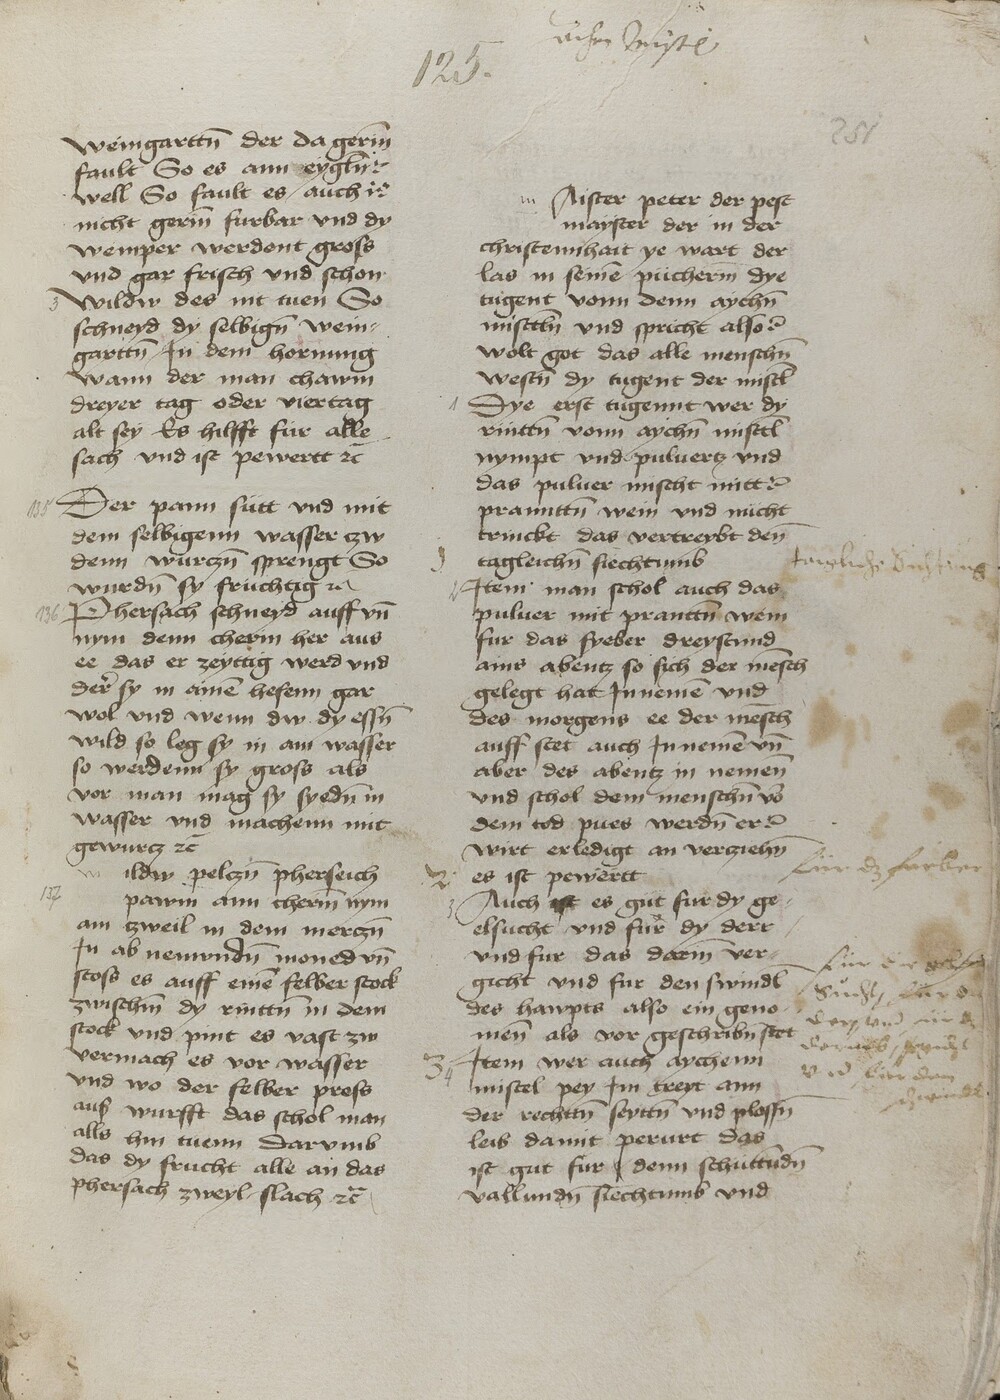 125.
251
weingarttn̄ der da gerīn
fault So es ann eygln̄ ꝛc
well So fault es auch ir
nicht gerīn furbar vnd dy
wemper werdent gross
vnd gar frisch vnd schon
3 Wildw des nit tuen So
schneyd dy selbign̄ wein-
garttn̄ In dem hornung
wann der man chawm
dreyer tag oder viertag
alt sey Es hilfft für alle
sach vnd ist pewertt ꝛc̄
135 Der pann sütt vnd mit
dem selbigenn wasser zw
denn wurczn̄ sprengt So
wurdn̄ sy fruchtig ꝛc
136 Phersach schneyd auff vn̄
nym denn chern her aus
ee das er zeyttig werd vnd
derr sy in ainē hefenn gar
wol vnd wenn dw dy essn̄
wild so leg sy in am wasser
so werdenn sy gross als
vor man mag sy syedn̄ in
wasser vnd machenn mit
gewurcz ꝛc̄
w ildw pelczn̄ pherseich
137 pawm ann chern̄ nym
am zweil in dem merczn̄
In ab nemundn̄ moned vn̄
stoss es auff einē felber stock
zwischn̄ dy rinttn̄ in dem
stock vnd pint es vast zw
vermach es vor wasser
vnd wo der felber press
aus wurfft das schol man
alls hin tuenn Darumb
das dy frucht alle an das
phersach zweyl slach ꝛc̄
m Aister peter der pest
mayster der in der
christennhait ye wart der
las in seinē püchern̄ dye
tugent vonn denn aychn̄
misttln̄ vnd spricht also
wolt got das alle menschn̄
westn̄ dy tugent der mistl
1 Dye erst tugennt wer dy
rinttn̄ vonn aychn̄ misttl
nympt vnd puluertz vnd
das puluer mischt mitt
pranttn̄ wein vnd nücht
trinckt das vertreybt den̄
tagleichn̄ siechtumb
2 Item man schol auch das
puluer mit pranttn̄ wein
fur das fyeber dreystund
ains abentz so sich der mēsch
gelegt hat In nemē vnd
des morgens ee der mēsch
auff stet auch In nemē vn̄
aber des abentz in nemen̄
vnd schol dem menschn̄ vō
dem tod pues werdn̄ er
wirt erledigt an verziehn̄
2 es ist pewērtt
3 Auch ist es gut fur dy ge-
elsucht vnd für dy derr
vnd fur das darm̄ ver-
gicht vnd fur den swindl
des hawpts also ein geno-
men̄ als vor geschribn̄ stet
3 4 Item wer auch aychenn
mistel pey Im treyt ann
der rechttn̄ seyttn̄ vnd plossn̄
leib damit perurt das
ist gut fur denn schuttūdn̄
vallundn̄ siechtumb vnd